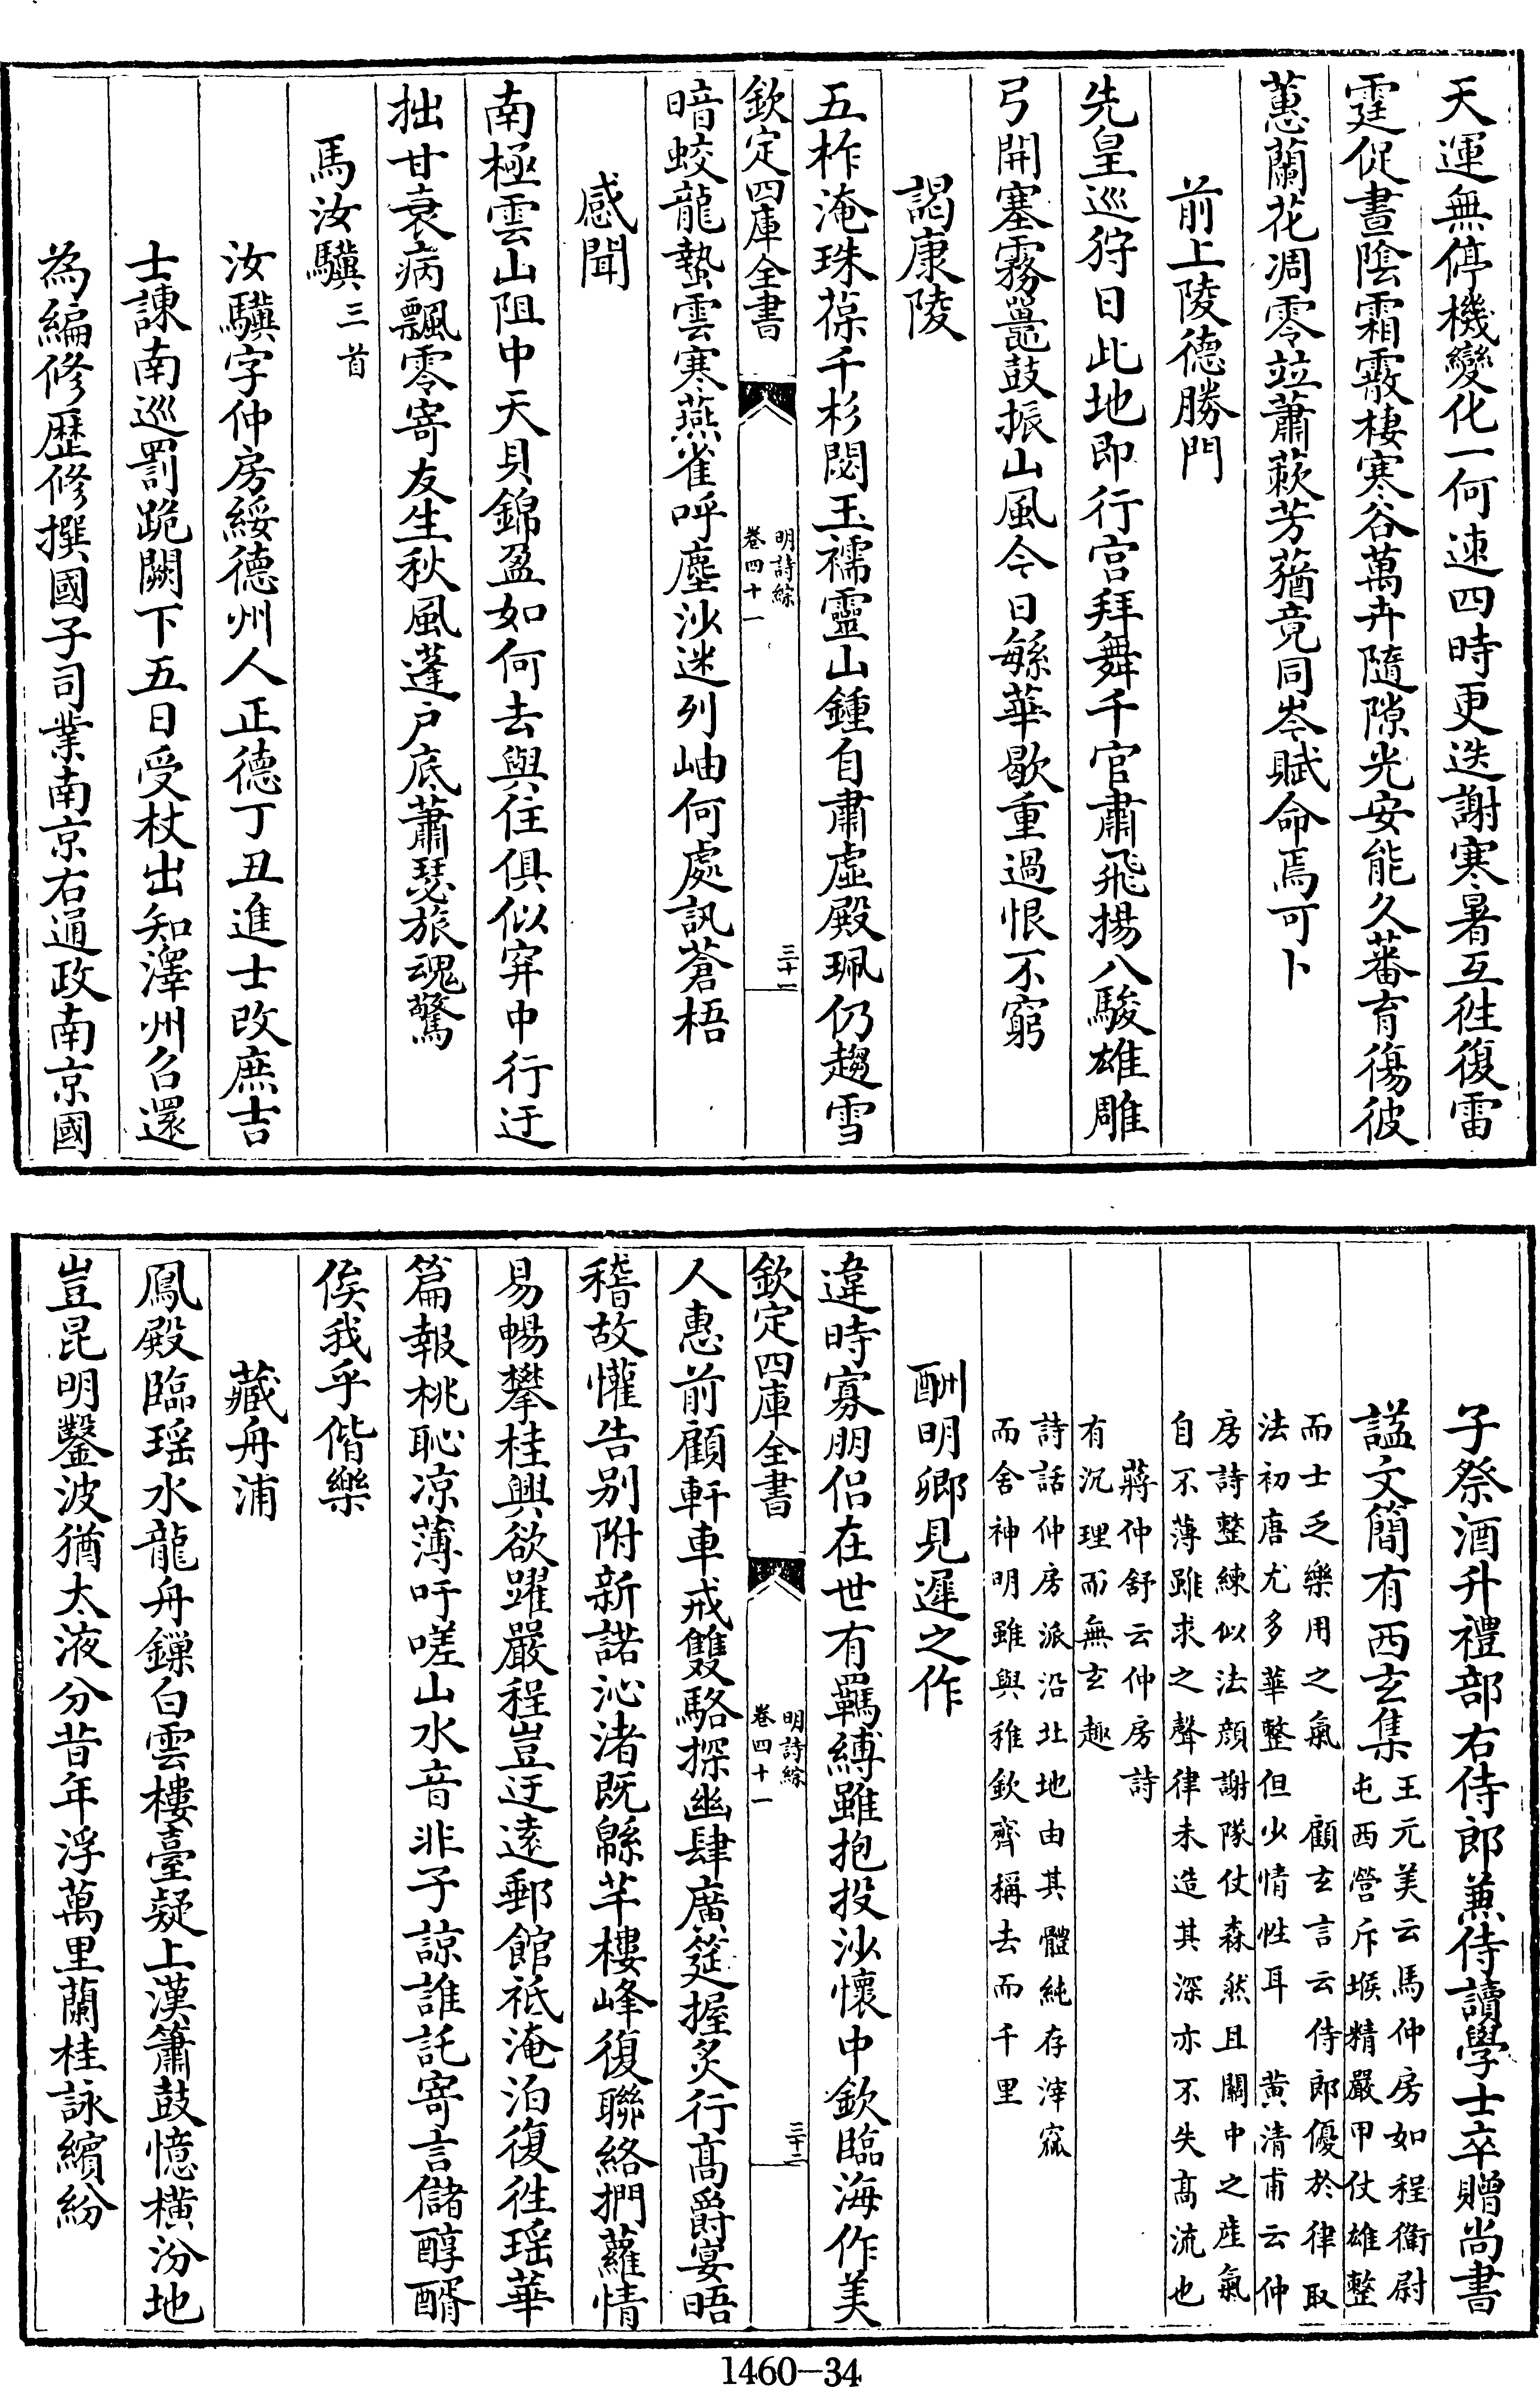 天運無停機變化一何速四時更迭謝寒暑互徃復雷
霆促晝陰霜霰棲寒谷萬卉隨隙光安能久蕃育傷彼
蕙蘭花凋零竝蕭蔌芳蕕竟同岑賦命焉可卜
前上陵德勝門
先皇巡狩日此地即行宮拜舞千官肅飛揚八駿雄雕
弓開塞霧鼉鼓振山風今日緐華歇重過恨不窮
謁康陵
五柞淹珠葆千杉閟玉襦靈山鍾自肅虛殿珮仍趨雪
欽定四庫全書
明詩綜
卷四十一
三十一
暗蛟龍蟄雲寒燕雀呼塵沙迷列岫何處訊蒼梧
感聞
南極雲山阻中天貝錦盈如何去與住俱似穽中行迂
拙甘衰病飄零寄友生秋風蓬户底蕭瑟旅魂驚
馬汝驥三首
汝驥字仲房綏德州人正德丁丑進士改庶吉
士諫南巡罰跪闕下五日受杖出知澤州召還
為編修歷修撰國子司業南京右通政南京國
子祭酒升禮部右侍郎兼侍讀學士卒贈尚書
諡文簡有西玄集
王元美云馬仲房如程衞尉
屯西營斥堠精嚴甲仗雄整
而士乏樂用之氣 顧玄言云侍郎優於律取
法初唐尤多華整但少情性耳 黄清甫云仲
房詩整練似法顔謝隊仗森然且關中之産氣
自不薄雖求之聲律未造其深亦不失髙流也
蔣仲舒云仲房詩
有沉理而無玄趣
詩話仲房派沿北地由其體純存滓窳
而舍神明雖與稚欽齊稱去而千里
酬明卿見遲之作
違時寡朋侣在世有羈縛雖抱投沙懷中欽臨海作美
欽定四庫全書
明詩綜
卷四十一
三十二
人惠前顧軒車戒雙駱探幽肆廣筵握炙行髙爵宴晤
稽故懽告别附新諾沁渚既緜芊樓峰復聯絡捫蘿情
易暢攀桂興欲躍嚴程豈迂遠郵館祗淹泊復徃瑶華
篇報桃恥凉薄吁嗟山水音非子諒誰託寄言儲醇醑
俟我乎偕樂
藏舟浦
鳳殿臨瑶水龍舟鏁白雲樓臺疑上漢簫鼓憶横汾地
豈昆明鑿波猶太液分昔年浮萬里蘭桂詠繽紛
1460-34